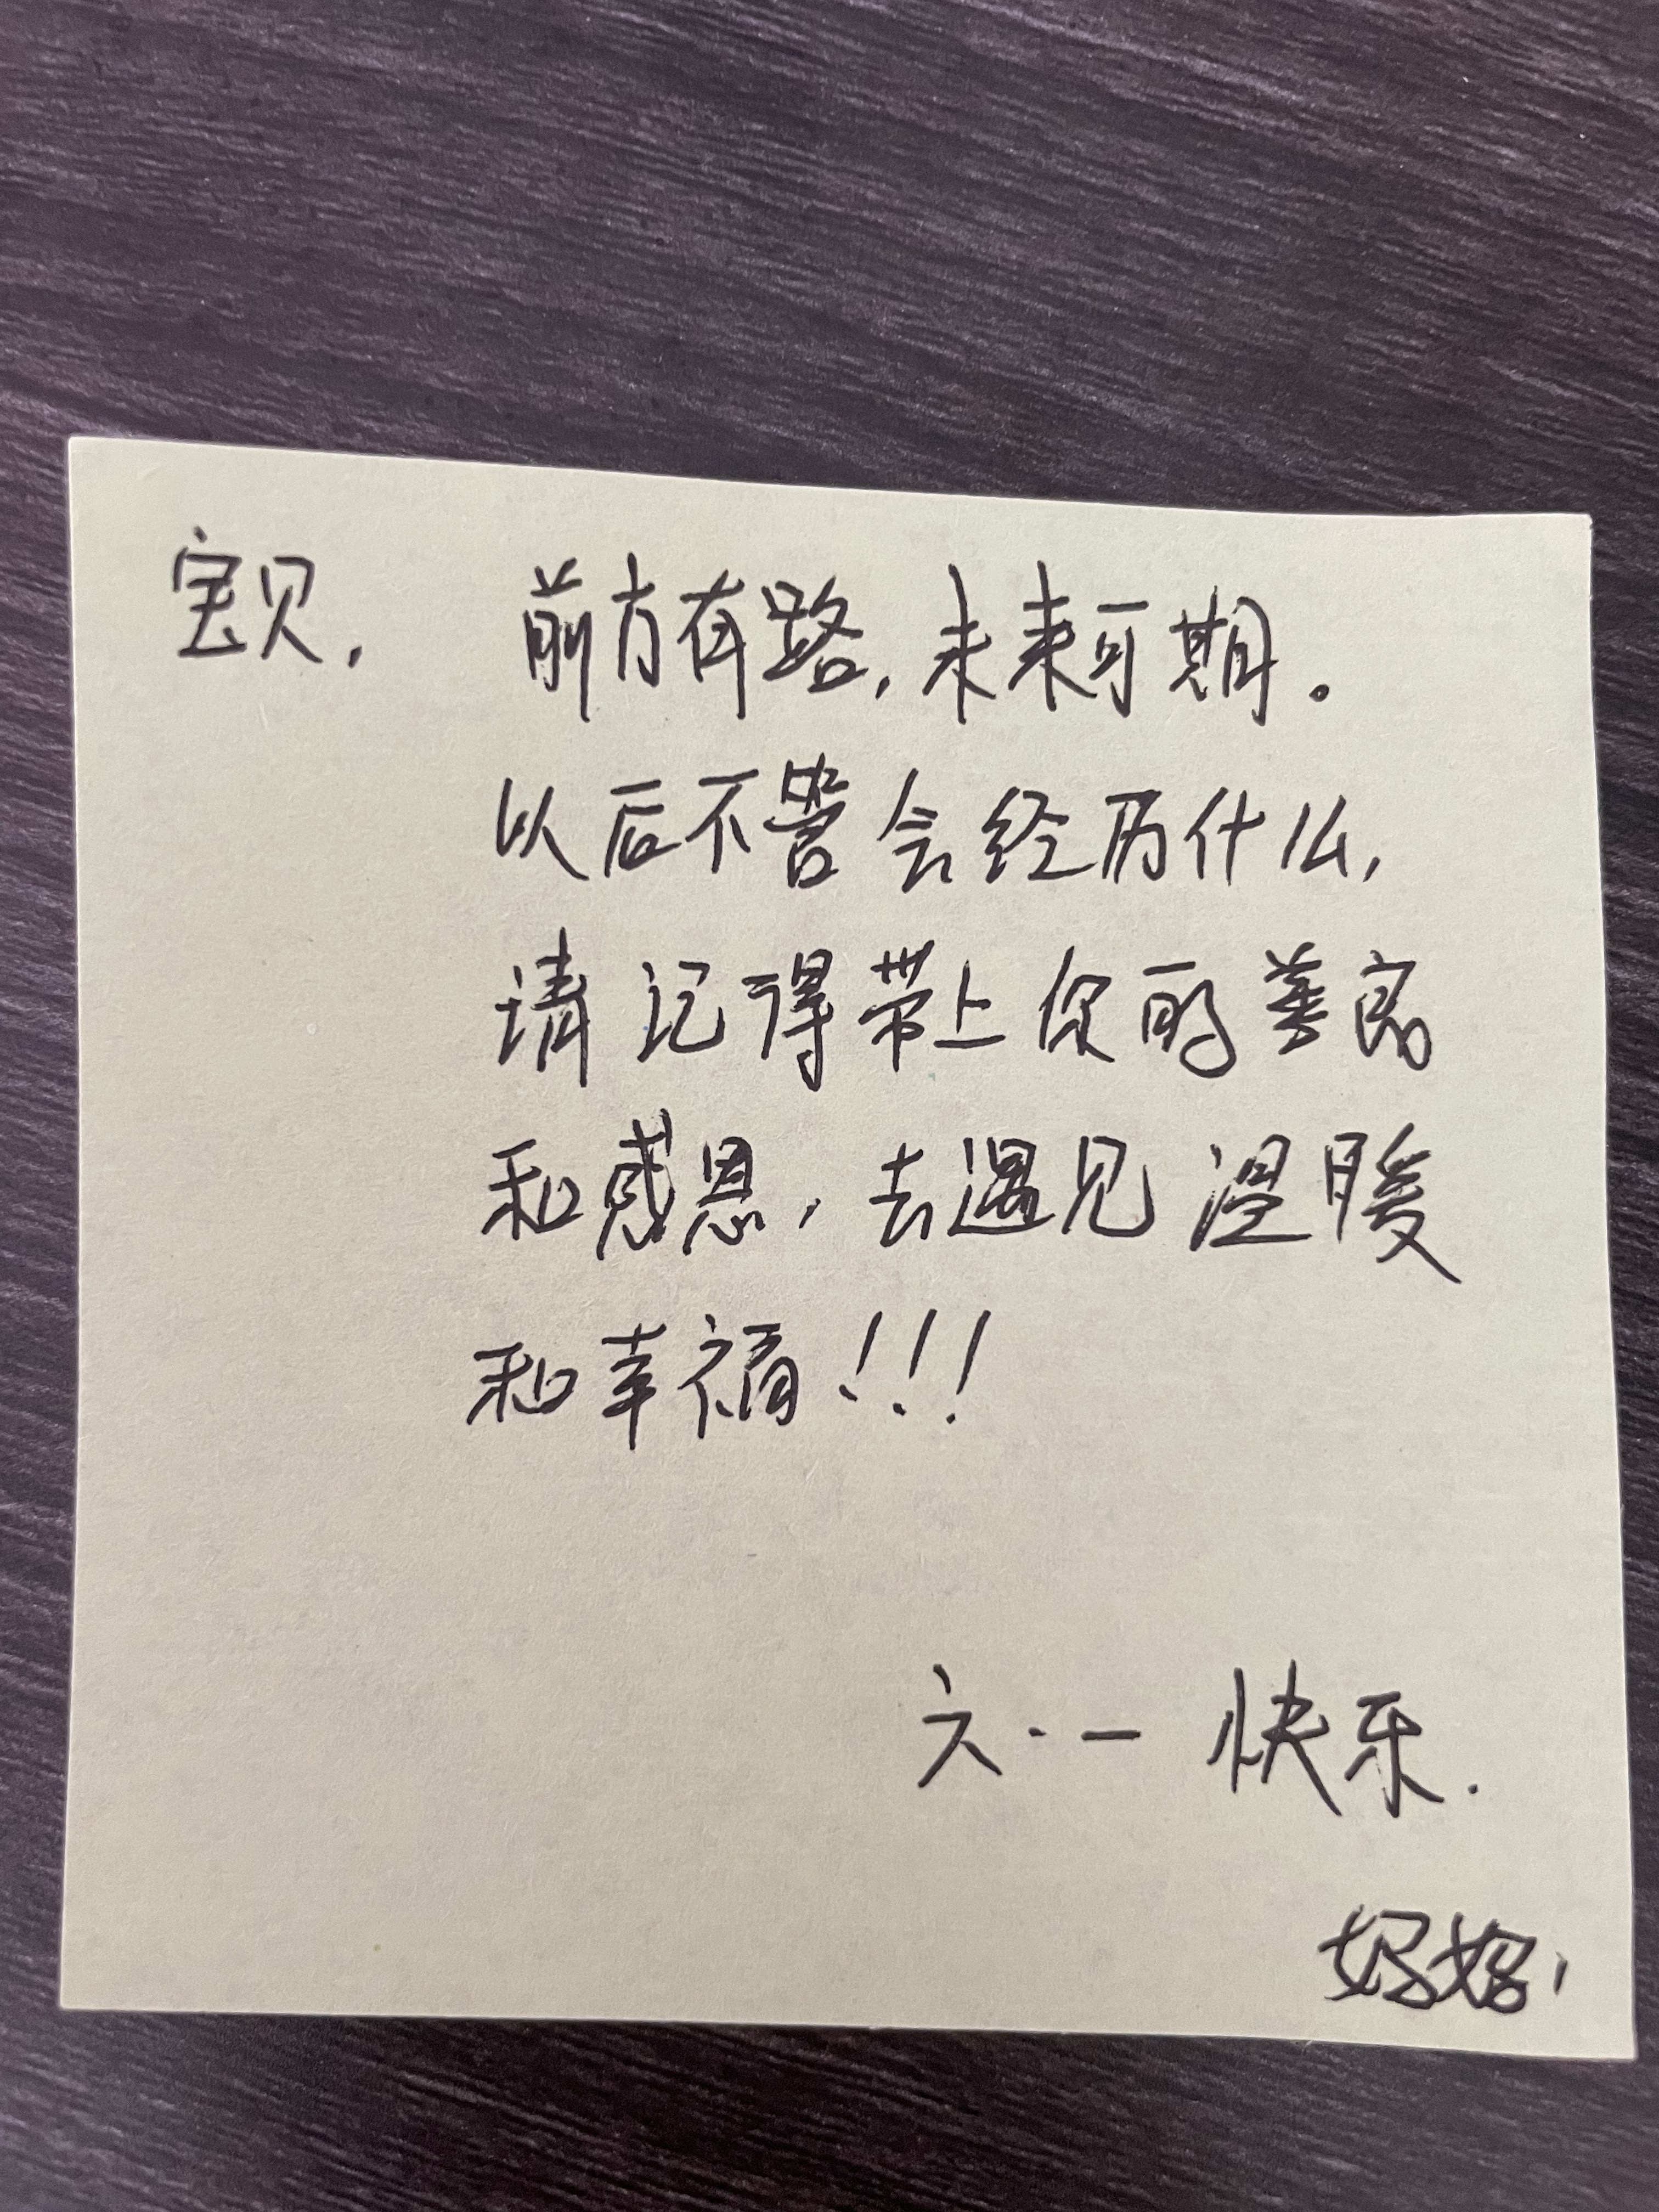 宝贝, 前方有路,未来可期。
以后不管会经历什么,
请记得带上你的善良
和感恩,去遇见温暖
和幸福!!!
六·一 快乐.